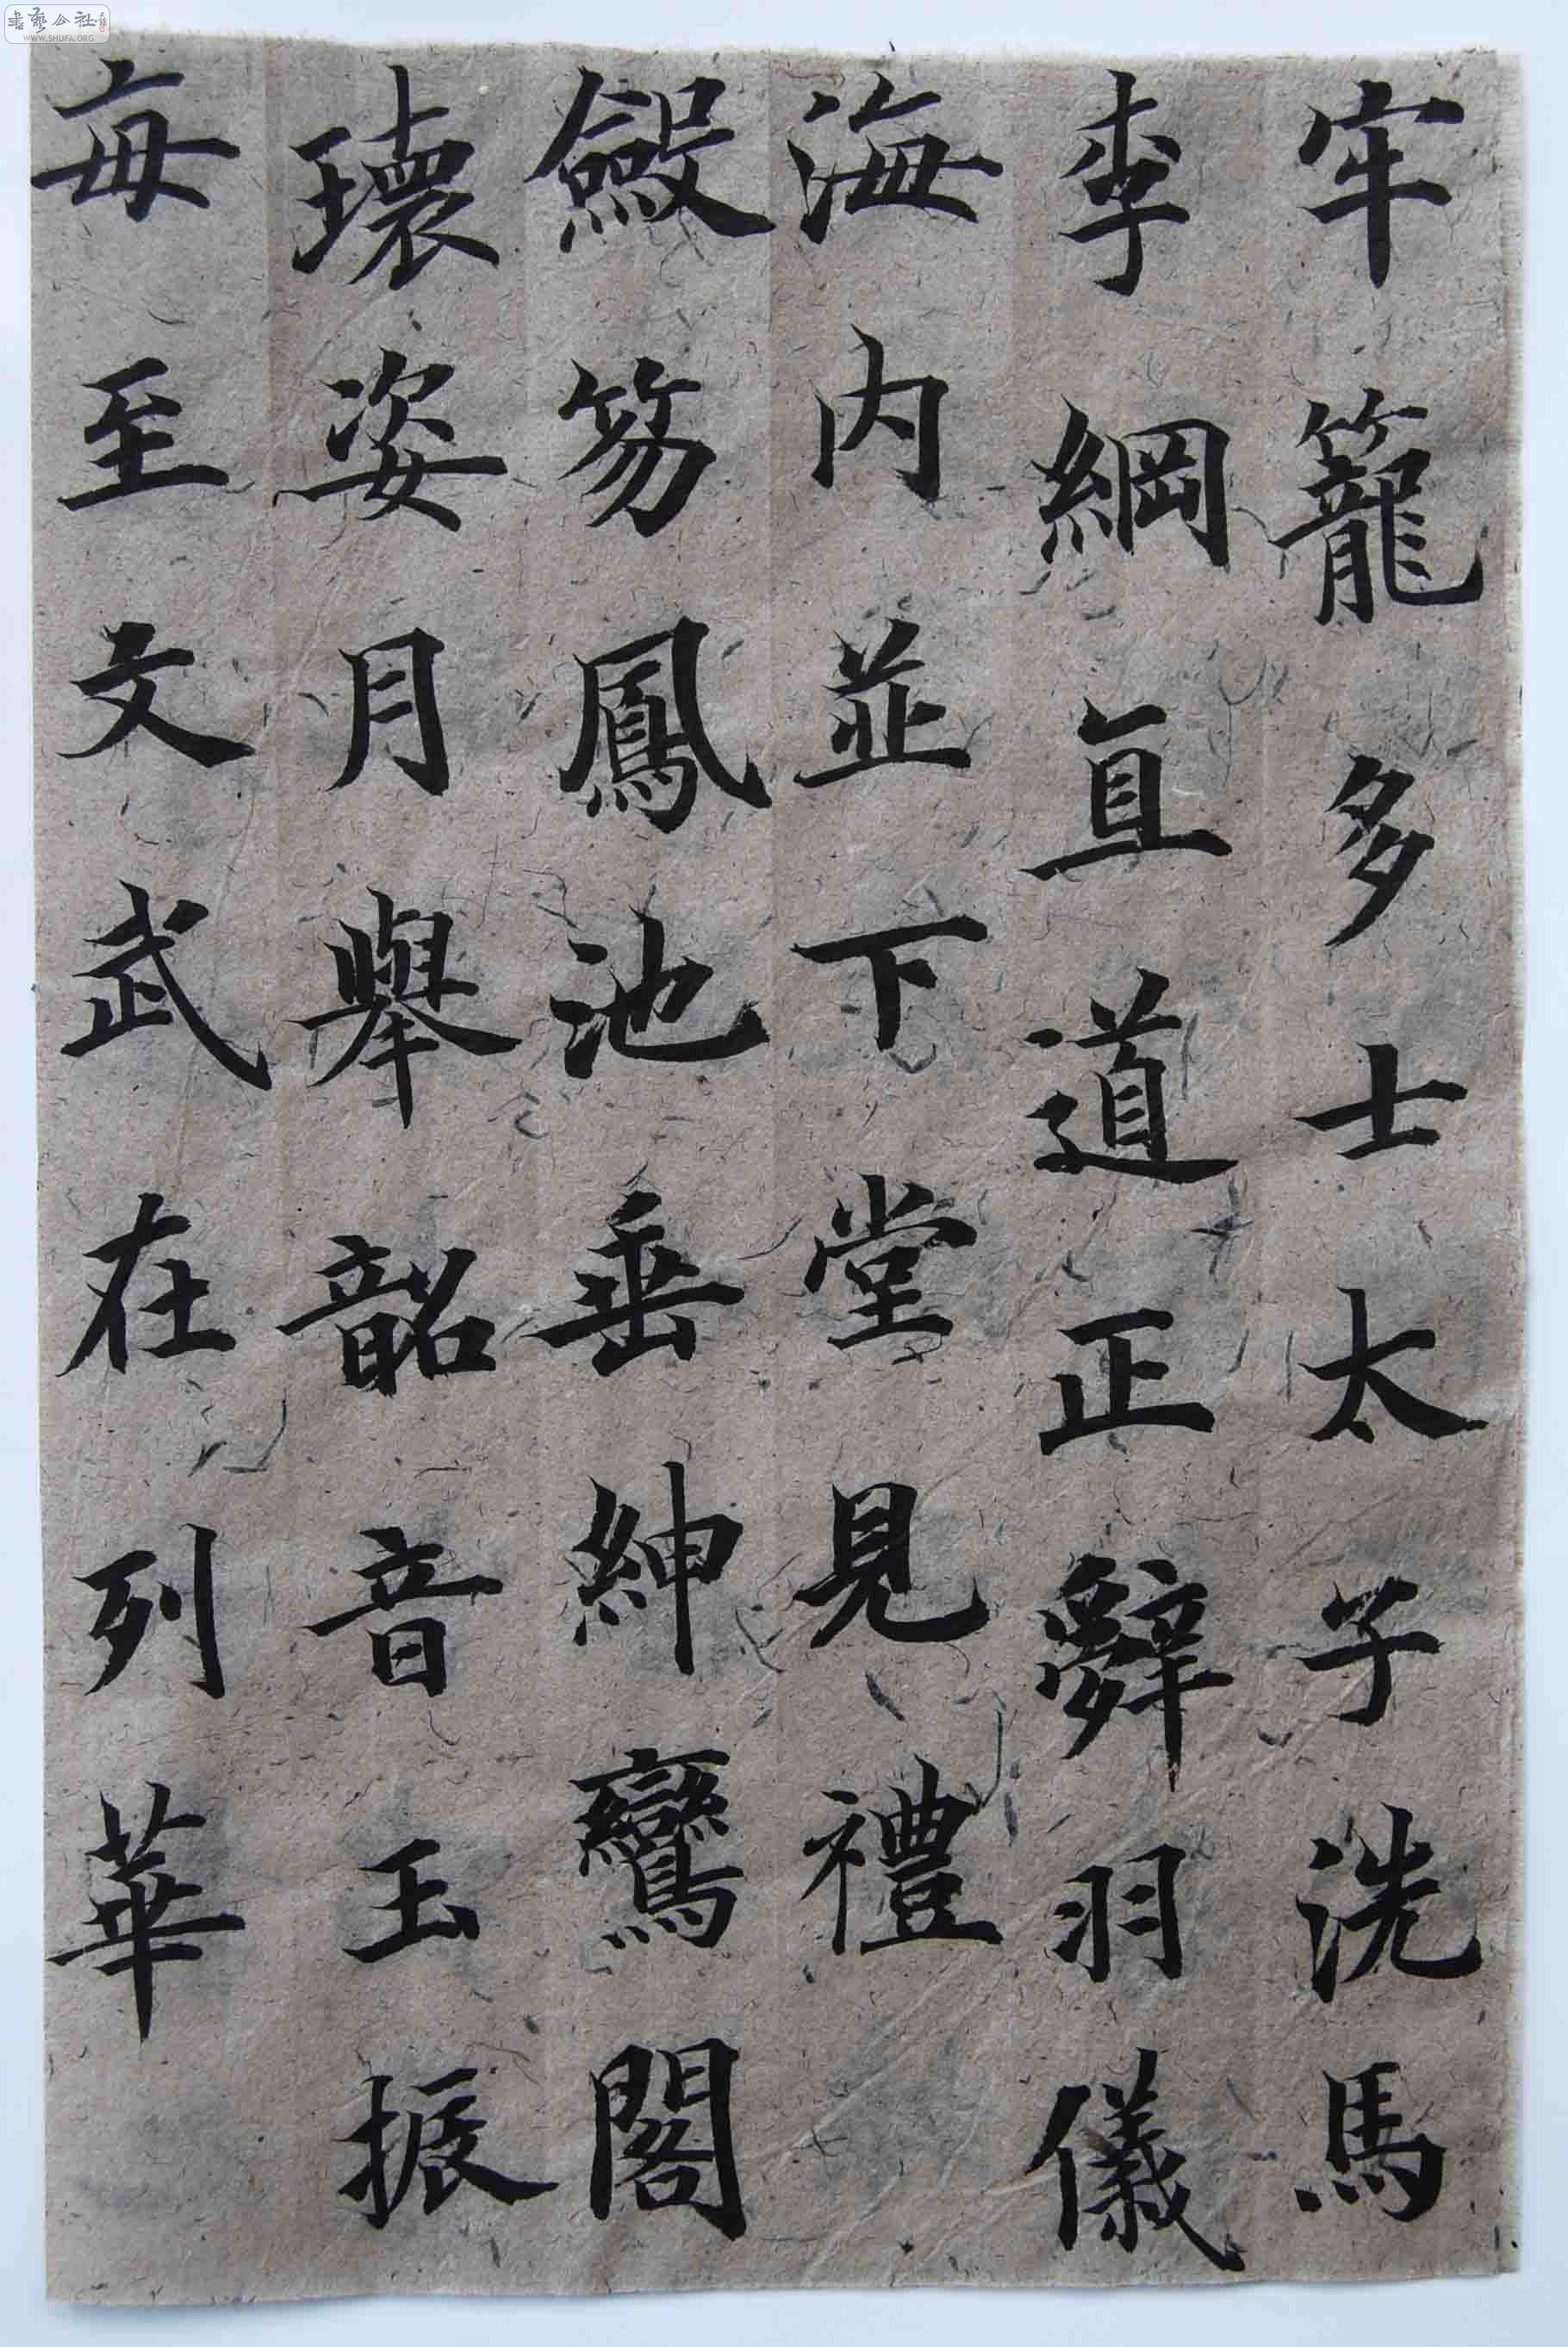 牢籠多士太子洗馬
李綱直道正辞羽儀
海内並下堂見禮
斂笏鳳池垂紳鸞閣
瓌姿月舉韶音玉振
每至文武在列華
書藝公社
WWW.SHUFA.ORG